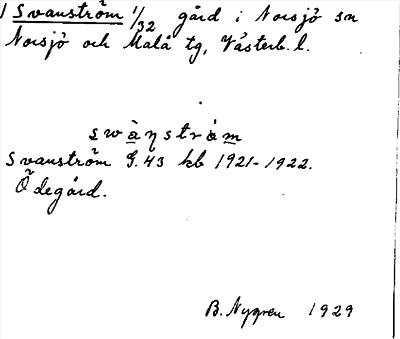 1 Svanström 1/32 gård i Norsjö sn
Norsjö och Malå tg, Västerb. l.
swànstrám
Svanström G. 43 kb 1921-1922.
Ödegård.
B. Nygren 1929